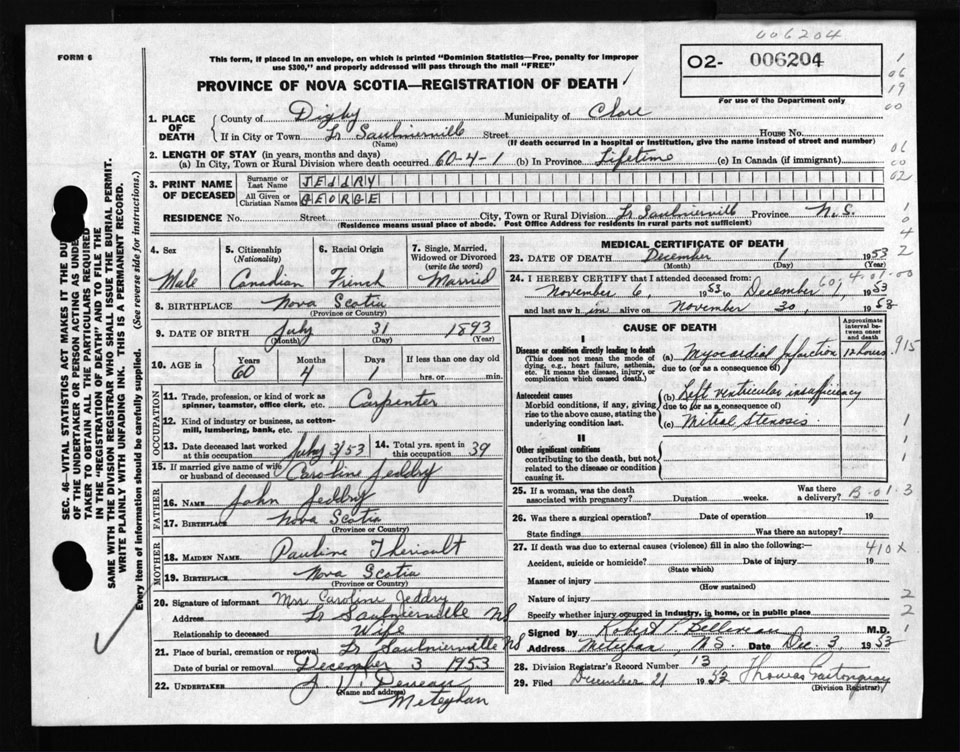 006204
FORM 6
This form, if placed in an envelope, on which is printed "Dominion Statistics—Free, penalty for improper
use $300," and properly addressed will pass through the mail "FREE"
O2- 006204
For use of the Department only
PROVINCE OF NOVA SCOTIA—REGISTRATION OF DEATH
1. PLACE OF DEATH
County of Digby Municipality of Clare
If in City or Town Lr Saulnierville Street House No.
(Name) (If death occurred in a hospital or institution, give the name instead of street and number)
2. LENGTH OF STAY (in years, months and days)
(a) In City, Town or Rural Division where death occurred 60-4-1 (b) In Province Lifetime (c) In Canada (if immigrant)
3. PRINT NAME OF DECEASED
Surname or Last Name JEDDRY
All Given or Christian Names GEORGE
RESIDENCE No. Street City, Town or Rural Division Lr Saulnierville Province N.S.
(Residence means usual place of abode. Post Office Address for residents in rural parts not sufficient)
4. Sex 5. Citizenship (Nationality) 6. Racial Origin 7. Single, Married, Widowed or Divorced (write the word)
Male Canadian French Married
8. BIRTHPLACE Nova Scotia
(Province or Country)
9. DATE OF BIRTH July 31 1893
(Month) (Day) (Year)
10. AGE in Years Months Days If less than one day old
60 4 1 hrs. or min.
OCCUPATION
11. Trade, profession, or kind of work as spinner, teamster, office clerk, etc. Carpenter
12. Kind of industry or business, as cotton-mill, lumbering, bank, etc.
13. Date deceased last worked at this occupation July 3/53 14. Total yrs. spent in this occupation 39
15. If married give name of wife or husband of deceased Caroline Jeddry
FATHER
16. NAME John Jeddry
17. BIRTHPLACE Nova Scotia
(Province or Country)
MOTHER
18. MAIDEN NAME Pauline Theriault
19. BIRTHPLACE Nova Scotia
(Province or Country)
20. Signature of informant Mrs Caroline Jeddry
Address Lr Saulnierville NS
Relationship to deceased Wife
21. Place of burial, cremation or removal Lr Saulnierville NS
Date of burial or removal December 3 1953
22. UNDERTAKER
(Name and address)
Meteghan
MEDICAL CERTIFICATE OF DEATH
23. DATE OF DEATH December 1 1953
(Month) (Day) (Year)
24. I HEREBY CERTIFY that I attended deceased from:
November 6, 1953 to December 1, 1953
and last saw h im alive on November 30, 1953
CAUSE OF DEATH
Approximate interval between onset and death
I
Disease or condition directly leading to death (a) Myocardial Infarction 12 hours
(This does not mean the mode of dying, e.g., heart failure, asthenia, etc. It means the disease, injury, or complication which caused death.)
due to (or as a consequence of)
Antecedent causes (b) Left ventricular insufficiency
Morbid conditions, if any, giving rise to the above cause, stating the underlying condition last.
due to (or as a consequence of)
(c) Mitral Stenosis
II
Other significant conditions
contributing to the death, but not related to the disease or condition causing it.
25. If a woman, was the death associated with pregnancy? Duration weeks. Was there a delivery?
B-01-3
26. Was there a surgical operation? Date of operation 19
State findings Was there an autopsy?
27. If death was due to external causes (violence) fill in also the following:—
410x
Accident, suicide or homicide? Date of injury 19
(State which)
Manner of injury
(How sustained)
Nature of injury
Specify whether injury occurred in industry, in home, or in public place
Signed by Robert P Belliveau M.D.
Address Meteghan, N.S. Date Dec 3, 1953
28. Division Registrar's Record Number 13
29. Filed December 21 1953 Thomas
(Division Registrar)
SEC. 46—VITAL STATISTICS ACT MAKES IT THE DU
OF THE UNDERTAKER OR PERSON ACTING AS UNDE
TAKER TO OBTAIN ALL THE PARTICULARS REQUIRED
IN THE "REGISTRATION OF DEATH" AND TO FILE THE
SAME WITH THE DIVISION REGISTRAR WHO SHALL ISSUE THE BURIAL PERMIT.
WRITE PLAINLY WITH UNFADING INK. THIS IS A PERMANENT RECORD.
Every item of information should be carefully supplied. (See reverse side for instructions.)